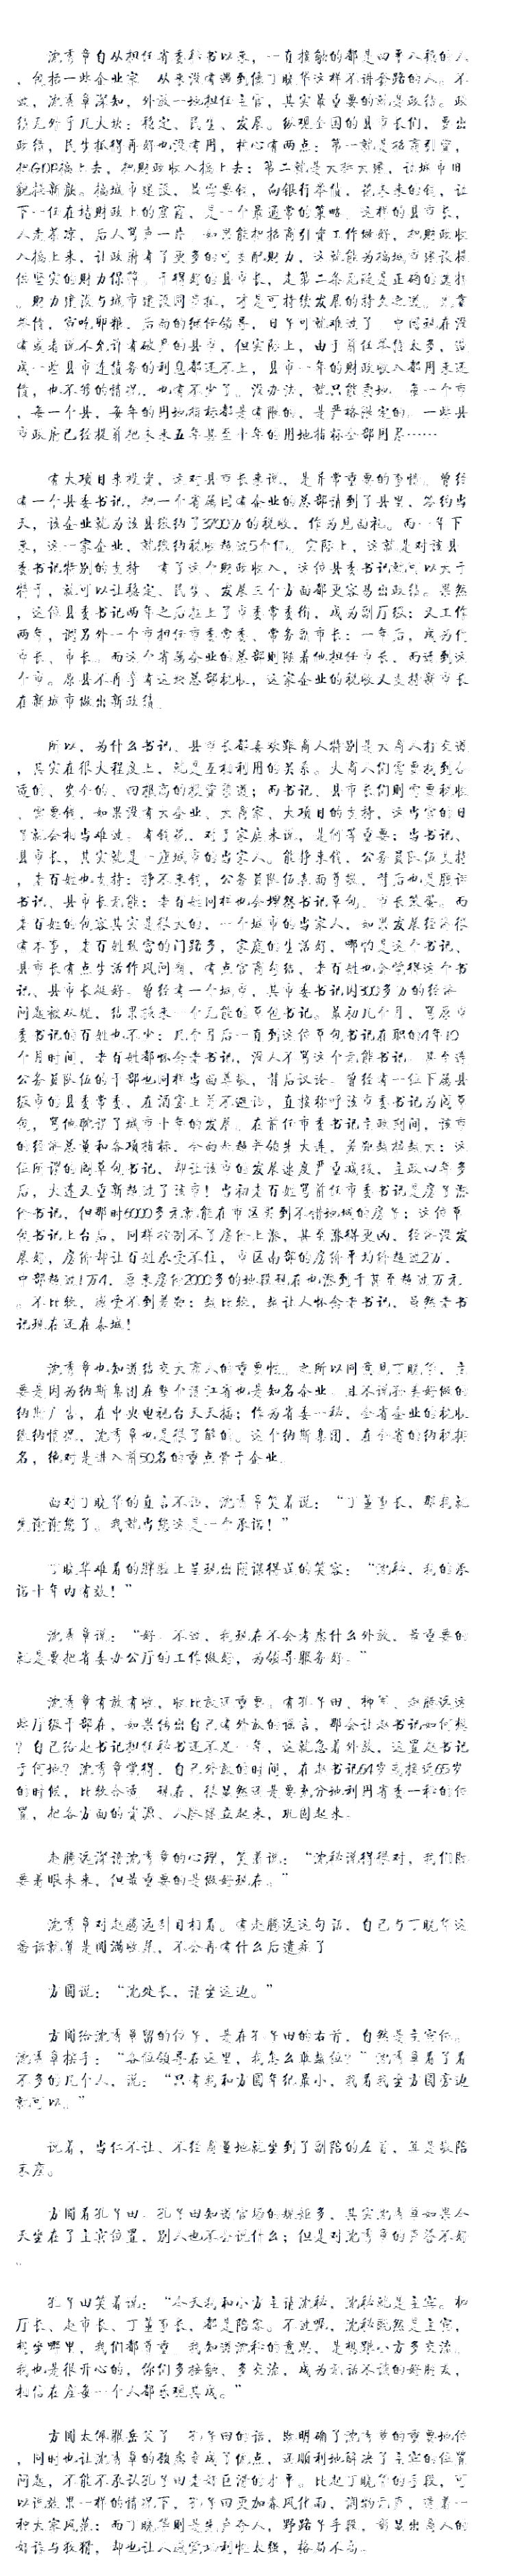 沈秀章自从担任省委秘书以来，一直接触的都是四平八稳的人
，包括一些企业家，从来没有遇到像丁晓华这样不讲套路的人。不
过，沈秀章深知，外放一地担任主官，其实最重要的就是政绩。政
绩无外乎几大块：稳定、民生、发展。纵观全国的县市长们，要出
政绩，民生抓得再好也没有用，核心有两点：第一就是招商引资，
把GDP搞上去，把财政收入搞上去；第二就是大拆大建，让城市旧
貌换新颜。搞城市建设，最需要钱，向银行举债，花未来的钱，让
下一任在填财政上的窟窿，是一个最通常的策略。这样的县市长，
人走茶凉，后人骂声一片。如果能把招商引资工作做好，把财政收
入搞上来，让政府有了更多的可支配财力，这就能为搞城市建设提
供坚实的财力保障。干得好的县市长，走第二条无疑是正确的选择
。财力建设与城市建设同步抓，才是可持续发展的持久之道。光靠
举债，寅吃卯粮，后面的继任领导，日子可就难过了。中国现在没
有或者说不允许有破产的县市，但实际上，由于前任举债太多，造
成一些县市连债务的利息都还不上，县市一年的财政收入都用来还
债，也不够的情况，也有不少了。没办法，就只能卖地。每一个市
，每一个县，每年的用地指标都是有限的，是严格限定的。一些县
市政府已经提前把未来五年甚至十年的用地指标全部用尽……
有大项目来投资，这对县市长来说，是非常重要的事情。曾经
有一个县委书记，把一个省属国有企业的总部请到了县里，签约当
天，该企业就为该县缴纳了3700万的税收，作为见面礼。而一年下
来，这一家企业，就缴纳税收超过5个亿。实际上，这就是对该县
委书记特别的支持。有了这个财政收入，这位县委书记就可以大干
特干，就可以让稳定、民生、发展三个方面都更容易出政绩。果然
，这位县委书记两年之后挂上了市委常委衔，成为副厅级；又工作
两年，调另外一个市担任市委常委、常务副市长；一年后，成为代
市长、市长。而这个省属企业的总部则随着他担任市长，而请到这
个市。原县不再享有这块总部税收，这家企业的税收又支持新市长
在新城市做出新政绩。
所以，为什么书记、县市长都喜欢跟商人特别是大商人打交道
，其实在很大程度上，就是互相利用的关系。大商人们需要找到合
适的、安全的、回报高的投资渠道；而书记、县市长们则需要税收
、需要钱，如果没有大企业、大商家、大项目的支持，这当官的日
子就会相当难过。有钱花，对于家庭来说，是何等重要；当书记、
县市长，其实就是一座城市的当家人。能挣来钱，公务员队伍支持
，老百姓也支持；挣不来钱，公务员队伍表面尊敬，背后也是腹诽
书记、县市长无能；老百姓同样也会埋怨书记草包、市长笨蛋。而
老百姓的包容其实是很大的，一个城市的当家人，如果发展经济很
有本事，老百姓致富的门路多，家庭的生活好，哪怕是这个书记、
县市长有点生活作风问题，有点官商勾结，老百姓也会觉得这个书
记、县市长挺好。曾经有一个城市，其市委书记因300多万的经济
问题被双规，结果换来一个无能的草包书记。最初几个月，骂原市
委书记的百姓也不少；几个月后一直到这位草包书记在职的4年10
个月时间，老百姓都怀念老书记，没人不骂这个无能书记。甚至连
公务员队伍的干部也同样当面尊敬，背后议论。曾经有一位下属县
级市的县委常委，在酒宴上并不避讳，直接称呼该市委书记为阎草
包，骂他耽误了城市十年的发展。在前任市委书记主政期间，该市
的经济总量和各项指标，全面赶超并领先大连，差距越拉越大；这
位所谓的阎草包书记，却让该市的发展速度严重减缓，主政四年多
后，大连又重新超过了该市！当初老百姓骂前任市委书记是房子涨
价书记，但那时6000多元就能在市区买到不错地域的房子；这位草
包书记上台后，同样控制不了房价上涨，甚至涨得更凶，经济没发
展好，房价却让百姓承受不住，市区南部的房价平均都超过2万，
中部超过1万4，原来房价2000多的地段现在也涨到千甚至超过万元
。不比较，感觉不到差距；越比较，越让人怀念老书记，虽然老书
记现在还在秦城！
沈秀章也知道结交大商人的重要性。之所以同意见丁晓华，主
要是因为纳斯集团在整个清江省也是知名企业。且不说孙美好做的
纳斯广告，在中央电视台天天播；作为省委一秘，全省企业的税收
缴纳情况，沈秀章也是很了解的。这个纳斯集团，在全省的纳税排
名，绝对是进入前50名的重点骨干企业。
面对丁晓华的直言不讳，沈秀章笑着说：“丁董事长，那我就
先谢谢您了。我就当您这是一个承诺！”
丁晓华难看的胖脸上呈现出阴谋得逞的笑容：“沈秘，我的承
诺十年内有效！”
沈秀章说：“好。不过，我现在不会考虑什么外放，最重要的
就是要把省委办公厅的工作做好，为领导服务好。”
沈秀章有放有收，收比放还重要。有孔子田、柳军、赵腾远这
些厅级干部在，如果传出自己有外放的谣言，那会让赵书记如何想
？自己给赵书记担任秘书还不足一年，这就急着外放，这置赵书记
于何地？沈秀章觉得，自己外放的时间，在赵书记64岁或接近65岁
的时候，比较合适。现在，很显然还是要充分地利用省委一秘的位
置，把各方面的资源、人脉建立起来，巩固起来。
赵腾远深谙沈秀章的心理，笑着说：“沈秘说得很对，我们既
要着眼未来，但最重要的是做好现在。”
沈秀章对赵腾远刮目相看。有赵腾远这句话，自己与丁晓华这
番话就算是圆满收尾，不会再有什么后遗症了。
方圆说：“沈处长，请坐这边。”
方圆给沈秀章留的位子，是在孔子田的右首，自然是主宾位。
沈秀章摆手：“各位领导在这里，我怎么敢越位？”沈秀章看了看
不多的几个人，说：“只有我和方圆年纪最小，我看我坐方圆旁边
就可以。”
说着，当仁不让、不经商量地就坐到了副陪的左首，算是敬陪
末座。
方圆看孔子田。孔子田知道官场的规矩多，其实沈秀章如果今
天坐在了主宾位置，别人也不会说什么；但是对沈秀章的声誉不好
。
孔子田笑着说：“今天我和小方主请沈秘，沈秘就是主宾。柳
厅长、赵市长、丁董事长，都是陪客。不过呢，沈秘既然是主宾，
想坐哪里，我们都尊重。我知道沈秘的意思，是想跟小方多交流。
我也是很开心的，你们多接触、多交流，成为无话不谈的好朋友，
相信在座每一个人都乐观其成。”
方圆太佩服岳父了。孔子田的话，既明确了沈秀章的重要地位
，同时也让沈秀章的顾虑变成了优点，还顺利地解决了主宾的位置
问题，不能不承认孔子田老奸巨滑的水平。比起丁晓华的手段，可
以说效果一样的情况下，孔子田更加春风化雨，润物无声，透着一
种大家风范；而丁晓华则是先声夺人，野路子手段，彰显出商人的
奸诈与狡猾，却也让人感觉功利性太强，格局不高。